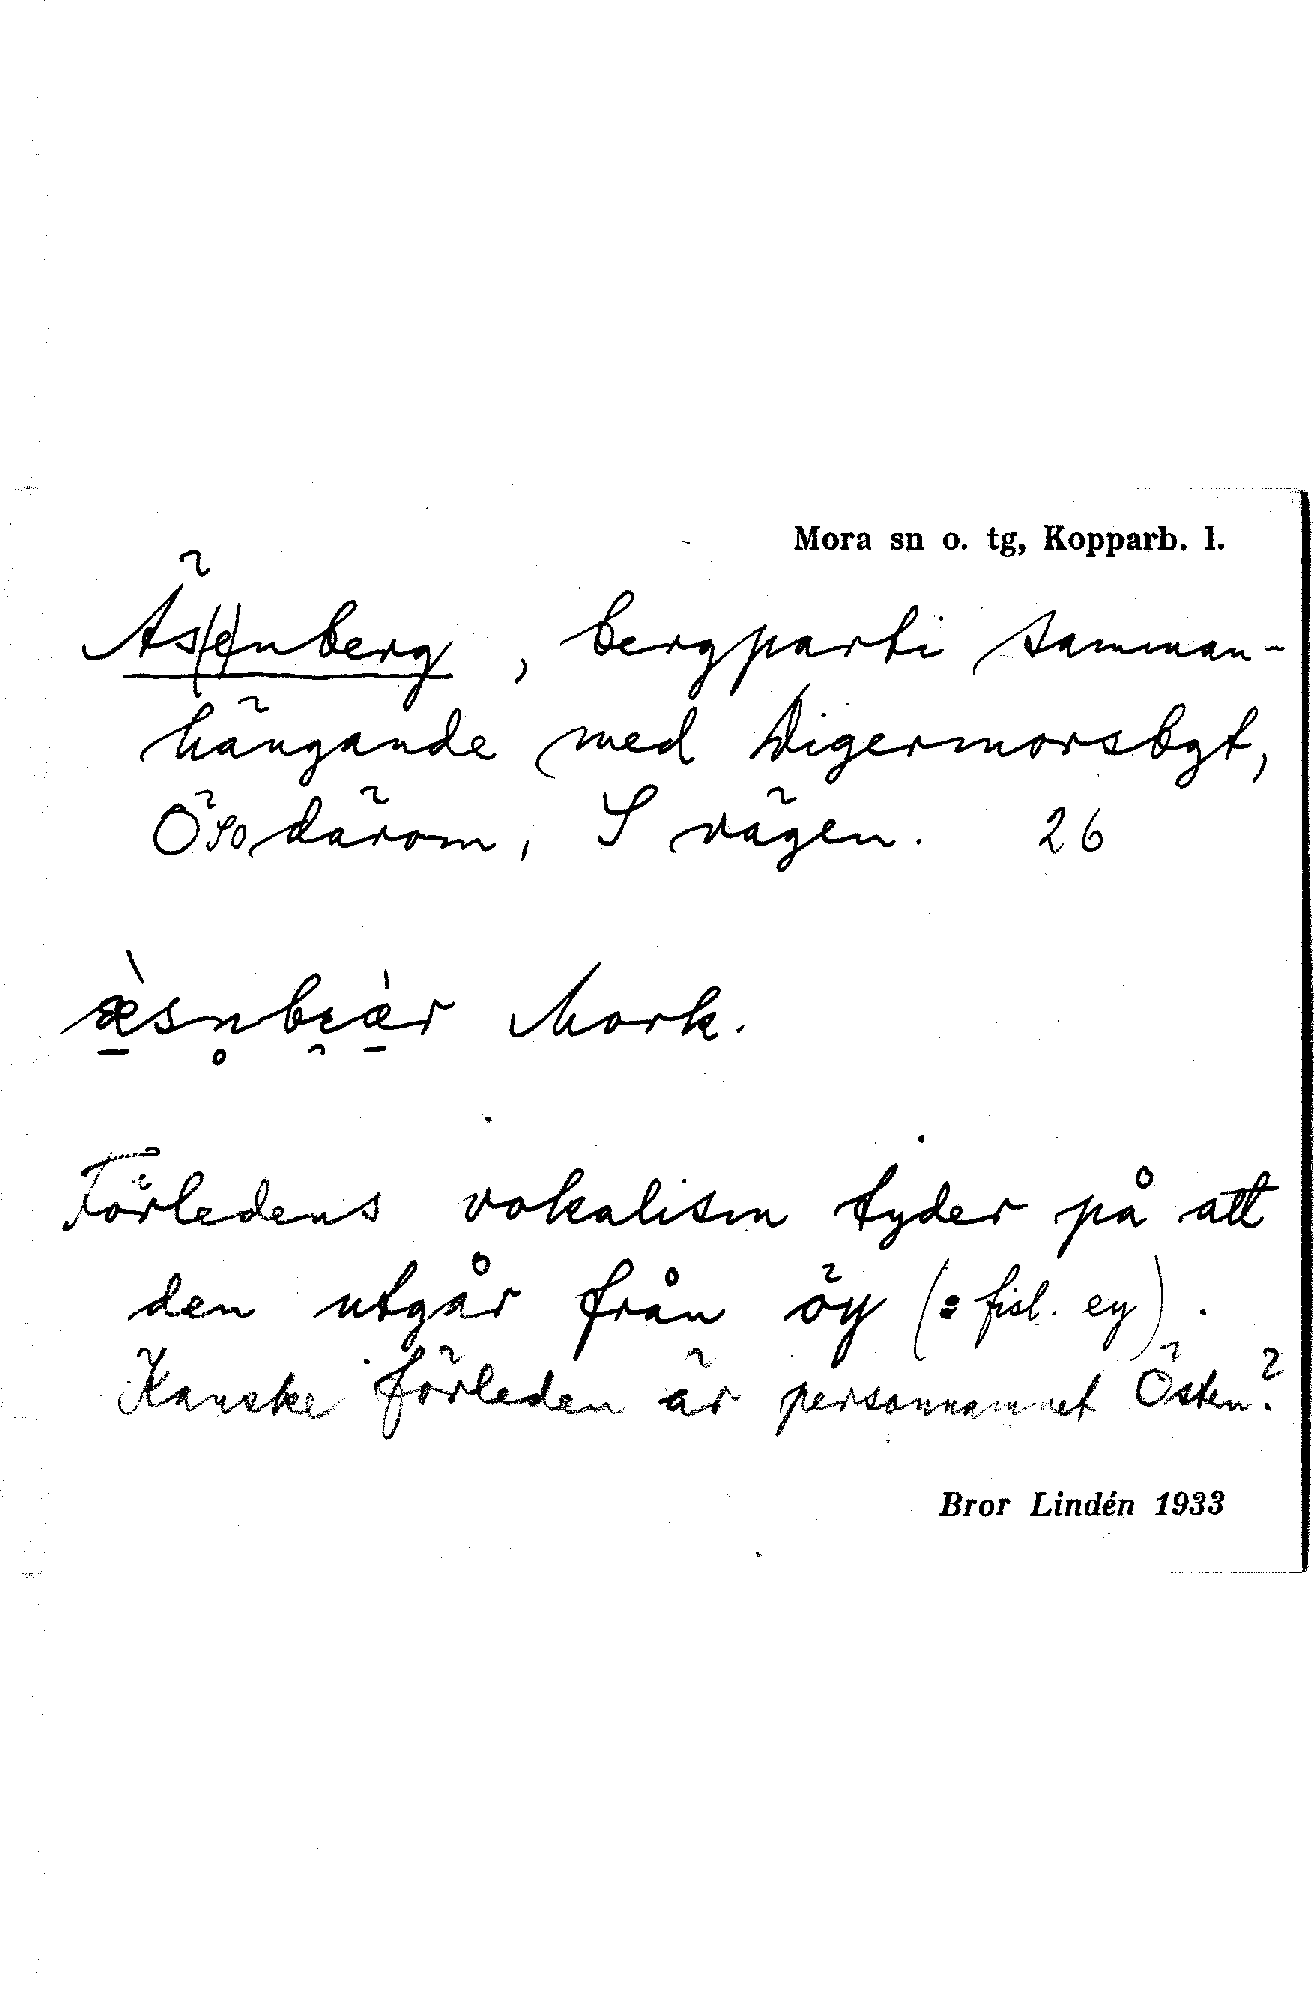 Mora sn o. tg, Kopparb. l.
Äs(e)nberg, bergparti samman-
hängande med Digermorsbgt,
ÖSO därom, S vägen. 26
æ̀sn̥bi̯æ̀r Mork.
Förledens vokalism tyder på att
den utgår från öy (: fisl. ey).
Kanske förleden är personnamnet Östen?
Bror Lindén 1933